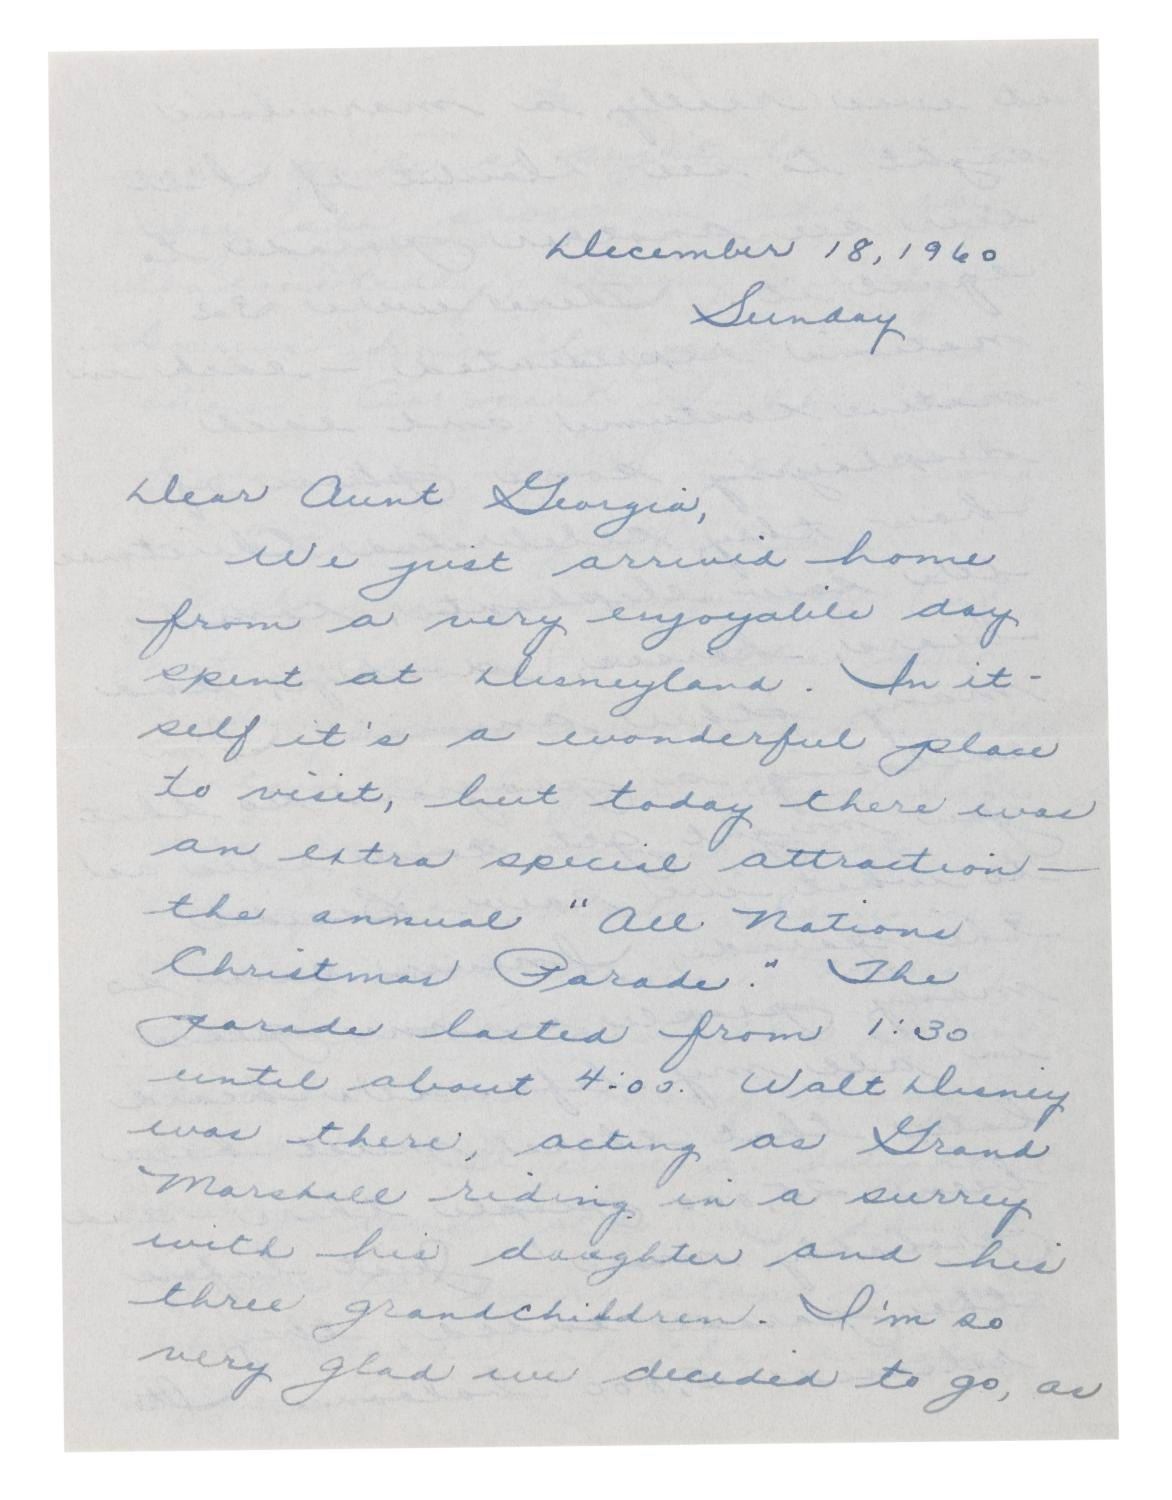 December 18, 1960
Sunday
Dear Aunt Georgia,
We just arrived home
from a very enjoyable day
spent at Disneyland. In it-
self it's a wonderful place
to visit, but today there was
an extra special attraction—
the annual "All Nations
Christmas Parade." The
parade lasted from 1:30
until about 4:00. Walt Disney
was there, acting as Grand
Marshall riding in a surrey
with his daughter and his
three grandchildren. I'm so
very glad we decided to go, as